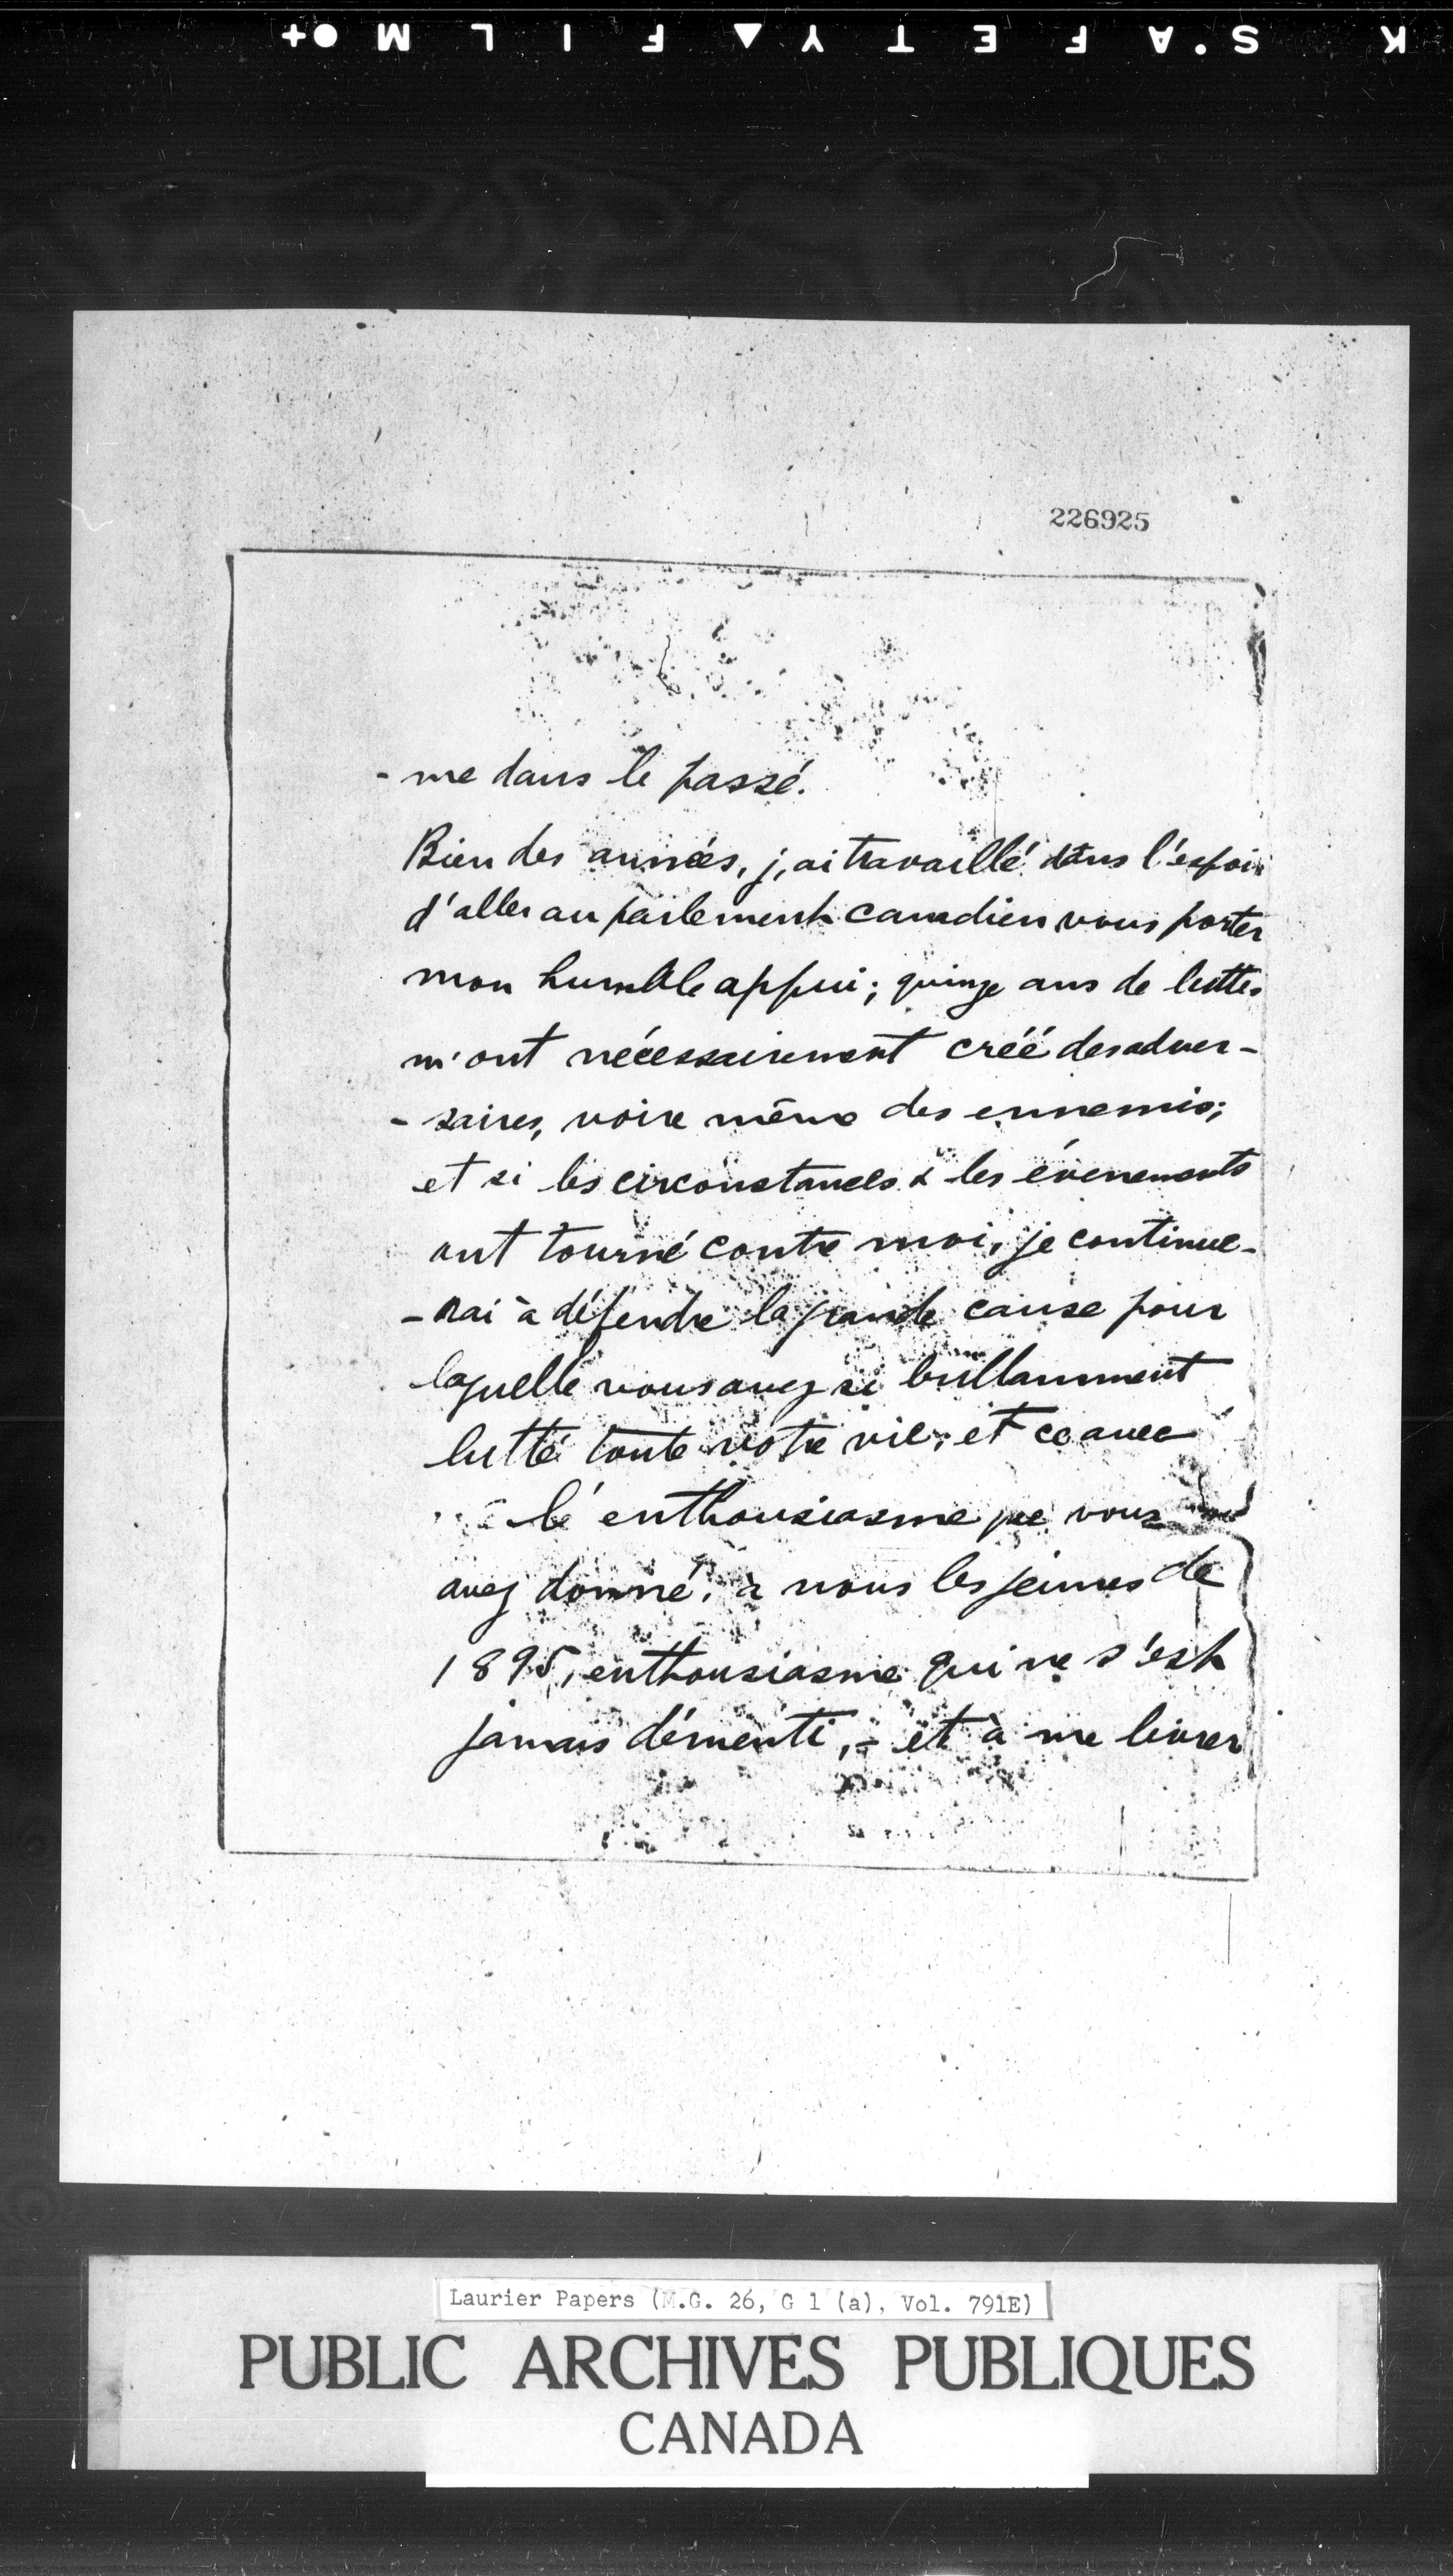 K S'AFETY▲FILM●+
226925
- me dans le passé.
Bien des années, j'ai travaillé dans l'espoir
d'aller au parlement canadien vous porter
mon humble appui; quinze ans de luttes
m'ont nécessairement créé des adver-
- saires, voire même des ennemis;
et si les circonstances & les évenements
ont tourné contre moi, je continue-
- rai à défendre la grande cause pour
laquelle vous avez si brillamment
lutté toute votre vie; et ce avec
l'enthousiasme que vous
avez donné, à nous les jeunes de
1895, enthousiasme qui ne s'est
jamais démenti, - et à me livrer
Laurier Papers (M.G. 26, G 1 (a), Vol. 791E)
PUBLIC ARCHIVES PUBLIQUES
CANADA